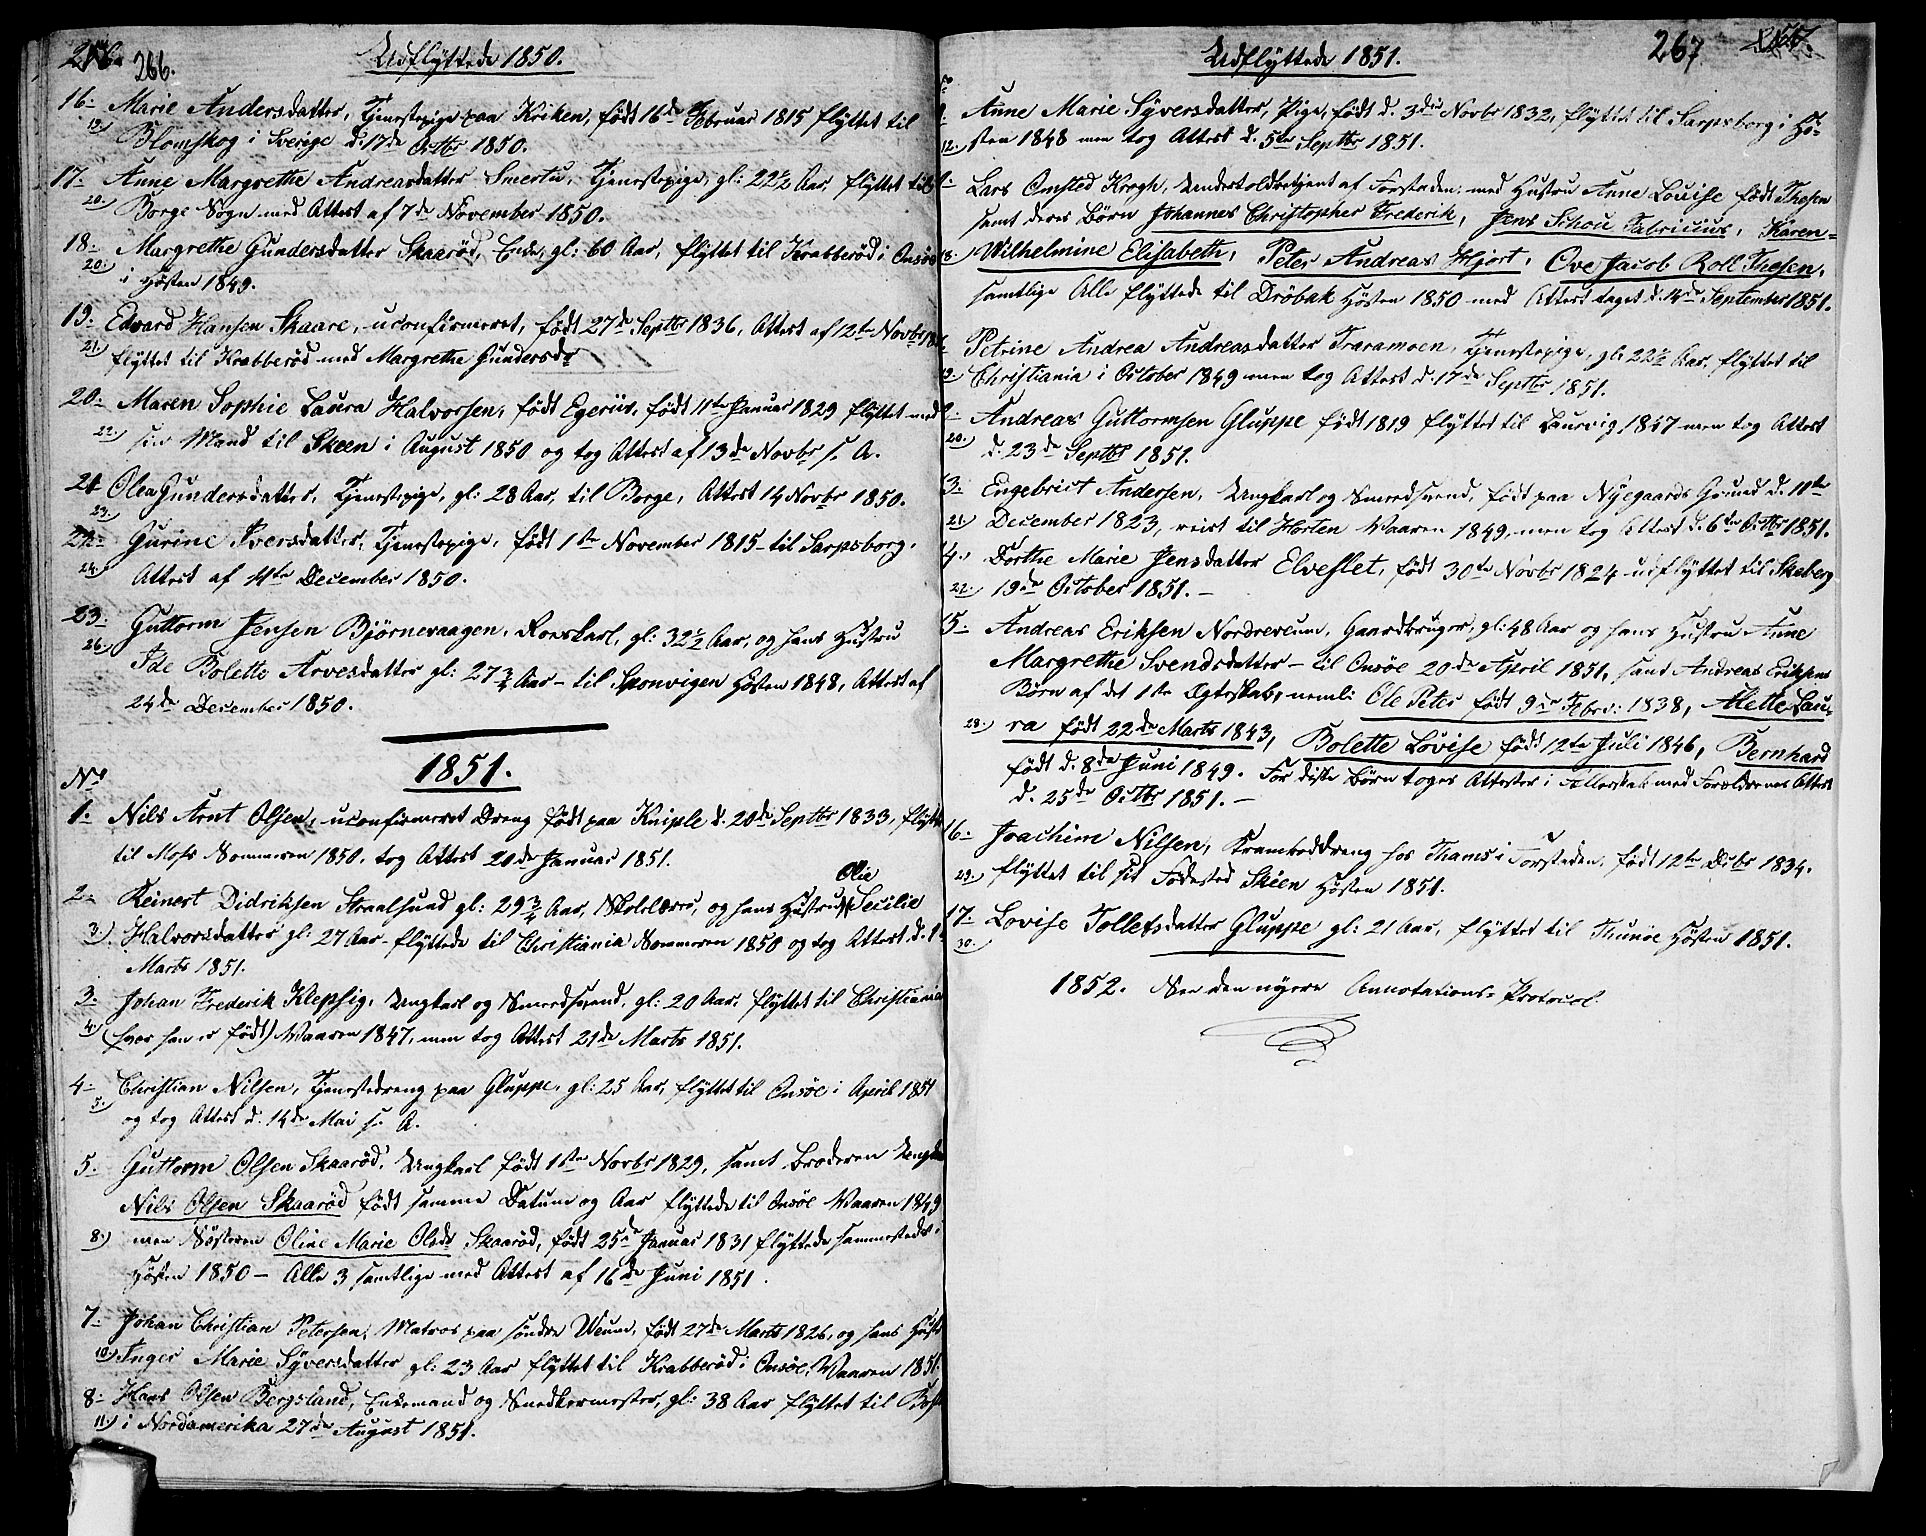 266.
Udflyttede 1850.
16. Marie Andersdatter, Tjenestepige paa Kriken, født 16de Februar 1815 flyttet til
19.) Blomskog i Sverige d. 17de Octbr 1850.
17. Anne Margrethe Andreasdatter Smertu, Tjenestepige, gl: 22½ Aar, flyttet til
20.) Borge Sogn med Attest af 7de November 1850.
18. Margrethe Gundersdatter Skaarød, Enke, gl: 60 Aar, flyttet til Krabberød i Onsøe
20.) i Høsten 1849.
19. Edvard Hansen Skaare, uconfirmeret, født 27de Septbr 1836, Attest af 12te Novbr
21.) flyttet til Krabberød med Margrethe Gundersdr
20. Maren Sophie Laura Halvorsen, født Egerius, født 11te Januar 1829 flyttet med
22.) sin Mand til Skeen i August 1850 og tog Attest af 13de Novbr s. A.
21 Olea Gundersdatter, Tjenestepige, gl: 28 Aar, til Borge, Attest 14 Novbr 1850.
23.)
22. Gurine Iversdatter, Tjenestepige, født 1ste November 1815 - til Sarpsborg.
24.) Attest af 4de December 1850.
23. Guttorm Jensen Bjørnevaagen, Roerskarl, gl: 32½ Aar, og hans Hustru
26.) Ide Bolette Arvesdatter gl: 27¾ Aar - til Sponvigen Høsten 1848, Attest af
24de December 1850.
1851.
No
1. Nils Arnt Olsen, uconfirmeret Dreng født paa Kniple d. 20de Septbr 1833, flyttet
til Moss Sommeren 1850, tog Attest 20de Januar 1851.
Olie
2. Reinert Didriksen Straalsund gl: 29¾ Aar, Skolelærer, og hans Hustru Secilie
3.) Halvorsdatter gl: 27 Aar - flyttede til Christiania Sommeren 1850 og tog Attest d. 1
Marts 1851.
3. Johan Frederik Klepsig, Ungkarl og Smedsvend, gl: 20 Aar, flyttet til Christiania
4.) (hvor han er født) Vaaren 1847, men tog Attest 21de Marts 1851.
4. Christian Nilsen, Tjenestedreng paa Gluppe, gl: 25 Aar, flyttet til Onsøe i April 1851
5.) og tog Attest d. 14de Mai s. A.
5. Guttorm Olsen Skaarød, Ungkarl født 1ste Novbr 1829, samt Broderen
Nils Olsen Skaarød født samme Datum og Aar flyttede til Onsøe Vaaren 1849
8.) men Søsteren Oline Marie Olsdr Skaarød, født 25de Januar 1831 flyttede sammesteds i
Høsten 1850 - Alle 3 samtlige med Attest af 16de Juni 1851.
7. Johan Christian Petersen, Matros paa søndre Weum, født 27de Marts 1826, og hans
10.) Inger Marie Syversdatter gl: 23 Aar flyttet til Krabberød i Onsøe, Vaaren 1851.
8. Hans Olsen Bergsland, Enkemand og Snedkermester, gl: 38 Aar flyttet til
11.) i Nordamerika 27de August 1851.
Udflyttede 1851.
267
Anne Marie Syversdatter, Pige, født d. 3die Novbr 1832, flyttet til Sarpsborg i Hø-
12.) sten 1848 men tog Attest d. 5te Septbr 1851.
Lars Omsted Krogh, Undertoldbetjent af Forstaden, med Hustru Anne Louise født Thesen
samt deres Børn Johannes Christopher Frederik, Jens Schou Fabricius, Karen-
18. Wilhelmine Elisabeth, Peter Andreas Hjort, Ove Jacob Roll Thesen,
samtlige Alle flyttede til Drøbak Høsten 1850 med Attest taget d. 14de September 1851.
Petrine Andrea Andreasdatter Traramoen, Tjenestepige, gl: 22½ Aar, flyttet til
19.) Christiania i October 1849 men tog Attest d. 17de Septbr 1851.
Andreas Guttormsen Gluppe født 1819 flyttet til Laurvig 1847 men tog Attest
20.) d. 23de Septbr 1851.
3. Engebrict Andersen, Ungkarl og Smedsvend, født paa Nygaards Grund d. 11te
21.) December 1823, reist til Horten Vaaren 1849, men tog Attest d. 6te Octbr 1851.
4. Dorthe Marie Jensdatter Elveflet, født 30te Novbr 1824 udflyttet til Skeberg
22.) 19de October 1851. -
5. Andreas Eriksen Nordreveum, Gaardbruger, gl: 48 Aar og hans Hustru Anne
Margrethe Svendsdatter - til Onsøe 20de April 1851, samt Andreas Eriksens
Børn af det 1ste Ægteskab, nemli: Ole Peter født 9de Febr: 1838, Mette Lau-
28.) ra født 22de Marts 1843, Bolette Lovise født 12te Juli 1846, Bernhard
født d. 8de Juni 1849. For disse Børn toges Attester i Fællesskab med Forældrenes Attest
d. 25de Octbr 1851. -
16. Joachim Nilsen, Kramboddreng hos Thams i Forstaden, født 12te Decbr 1834.
29.) flyttet til sit Fødested Skéen Høsten 1851.
17. Lovise Tollefsdatter Gluppe gl: 21 Aar, flyttet til Thunøe Høsten 1851.
30.)
1852. See den nyere Annotations-Protocol.